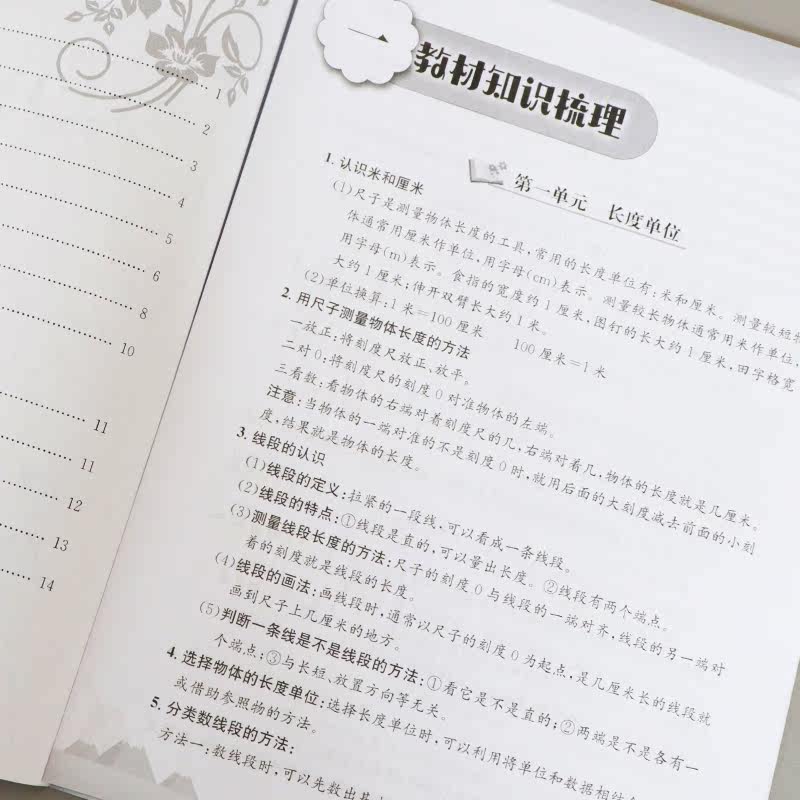 1
2
3
4
5
6
8
10
11
11
12
13
14
一
教材知识梳理
第一单元 长度单位
1. 认识米和厘米
(1)尺子是测量物体长度的工具,常用的长度单位有:米和厘米。测量较短物
体通常用厘米作单位,用字母(cm)表示。测量较长物体通常用米作单位,
用字母(m)表示。食指的宽度约1厘米,图钉的长大约1厘米,田字格宽
大约1厘米;伸开双臂长大约1米。
(2)单位换算:1米=100厘米 100厘米=1米
2. 用尺子测量物体长度的方法
一放正:将刻度尺放正、放平。
二对0:将刻度尺的刻度0对准物体的左端。
三看数:看物体的右端对着刻度尺的几,右端对着几,物体的长度就是几厘米。
注意:当物体的一端对准的不是刻度0时,就用后面的大刻度减去前面的小刻
度,结果就是物体的长度。
3. 线段的认识
(1)线段的定义:拉紧的一段线,可以看成一条线段。
(2)线段的特点:①线段是直的,可以量出长度。②线段有两个端点。
(3)测量线段长度的方法:尺子的刻度0与线段的一端对齐,线段的另一端对
着的刻度就是线段的长度。
(4)线段的画法:画线段时,通常以尺子的刻度0为起点,是几厘米长的线段就
画到尺子上几厘米的地方。
(5)判断一条线是不是线段的方法:①看它是不是直的;②两端是不是各有一
个端点;③与长短、放置方向等无关。
4. 选择物体的长度单位:选择长度单位时,可以利用将单位和数据相结合
或借助参照物的方法。
5. 分类数线段的方法:
方法一:数线段时,可以先数出基本